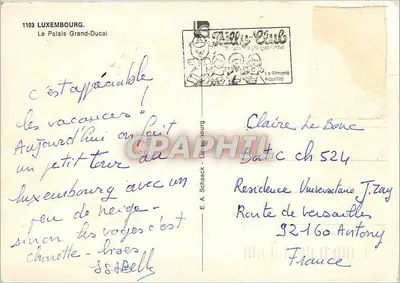 1103 LUXEMBOURG.
Le Palais Grand-Ducal
Billy-Club
c'est appréciable
les vacances !
Aujourd'hui on fait
un petit tour au
Luxembourg avec un
peu de neige -
sinon les vosges c'est
chouette - bises
Isabelle
E. A. Schaack - Luxembourg
CRAPHIL
Claire Le Bouc
Bat C ch 524
Residence Universitaire J. Zay
Route de Versailles
92160 Antony
France